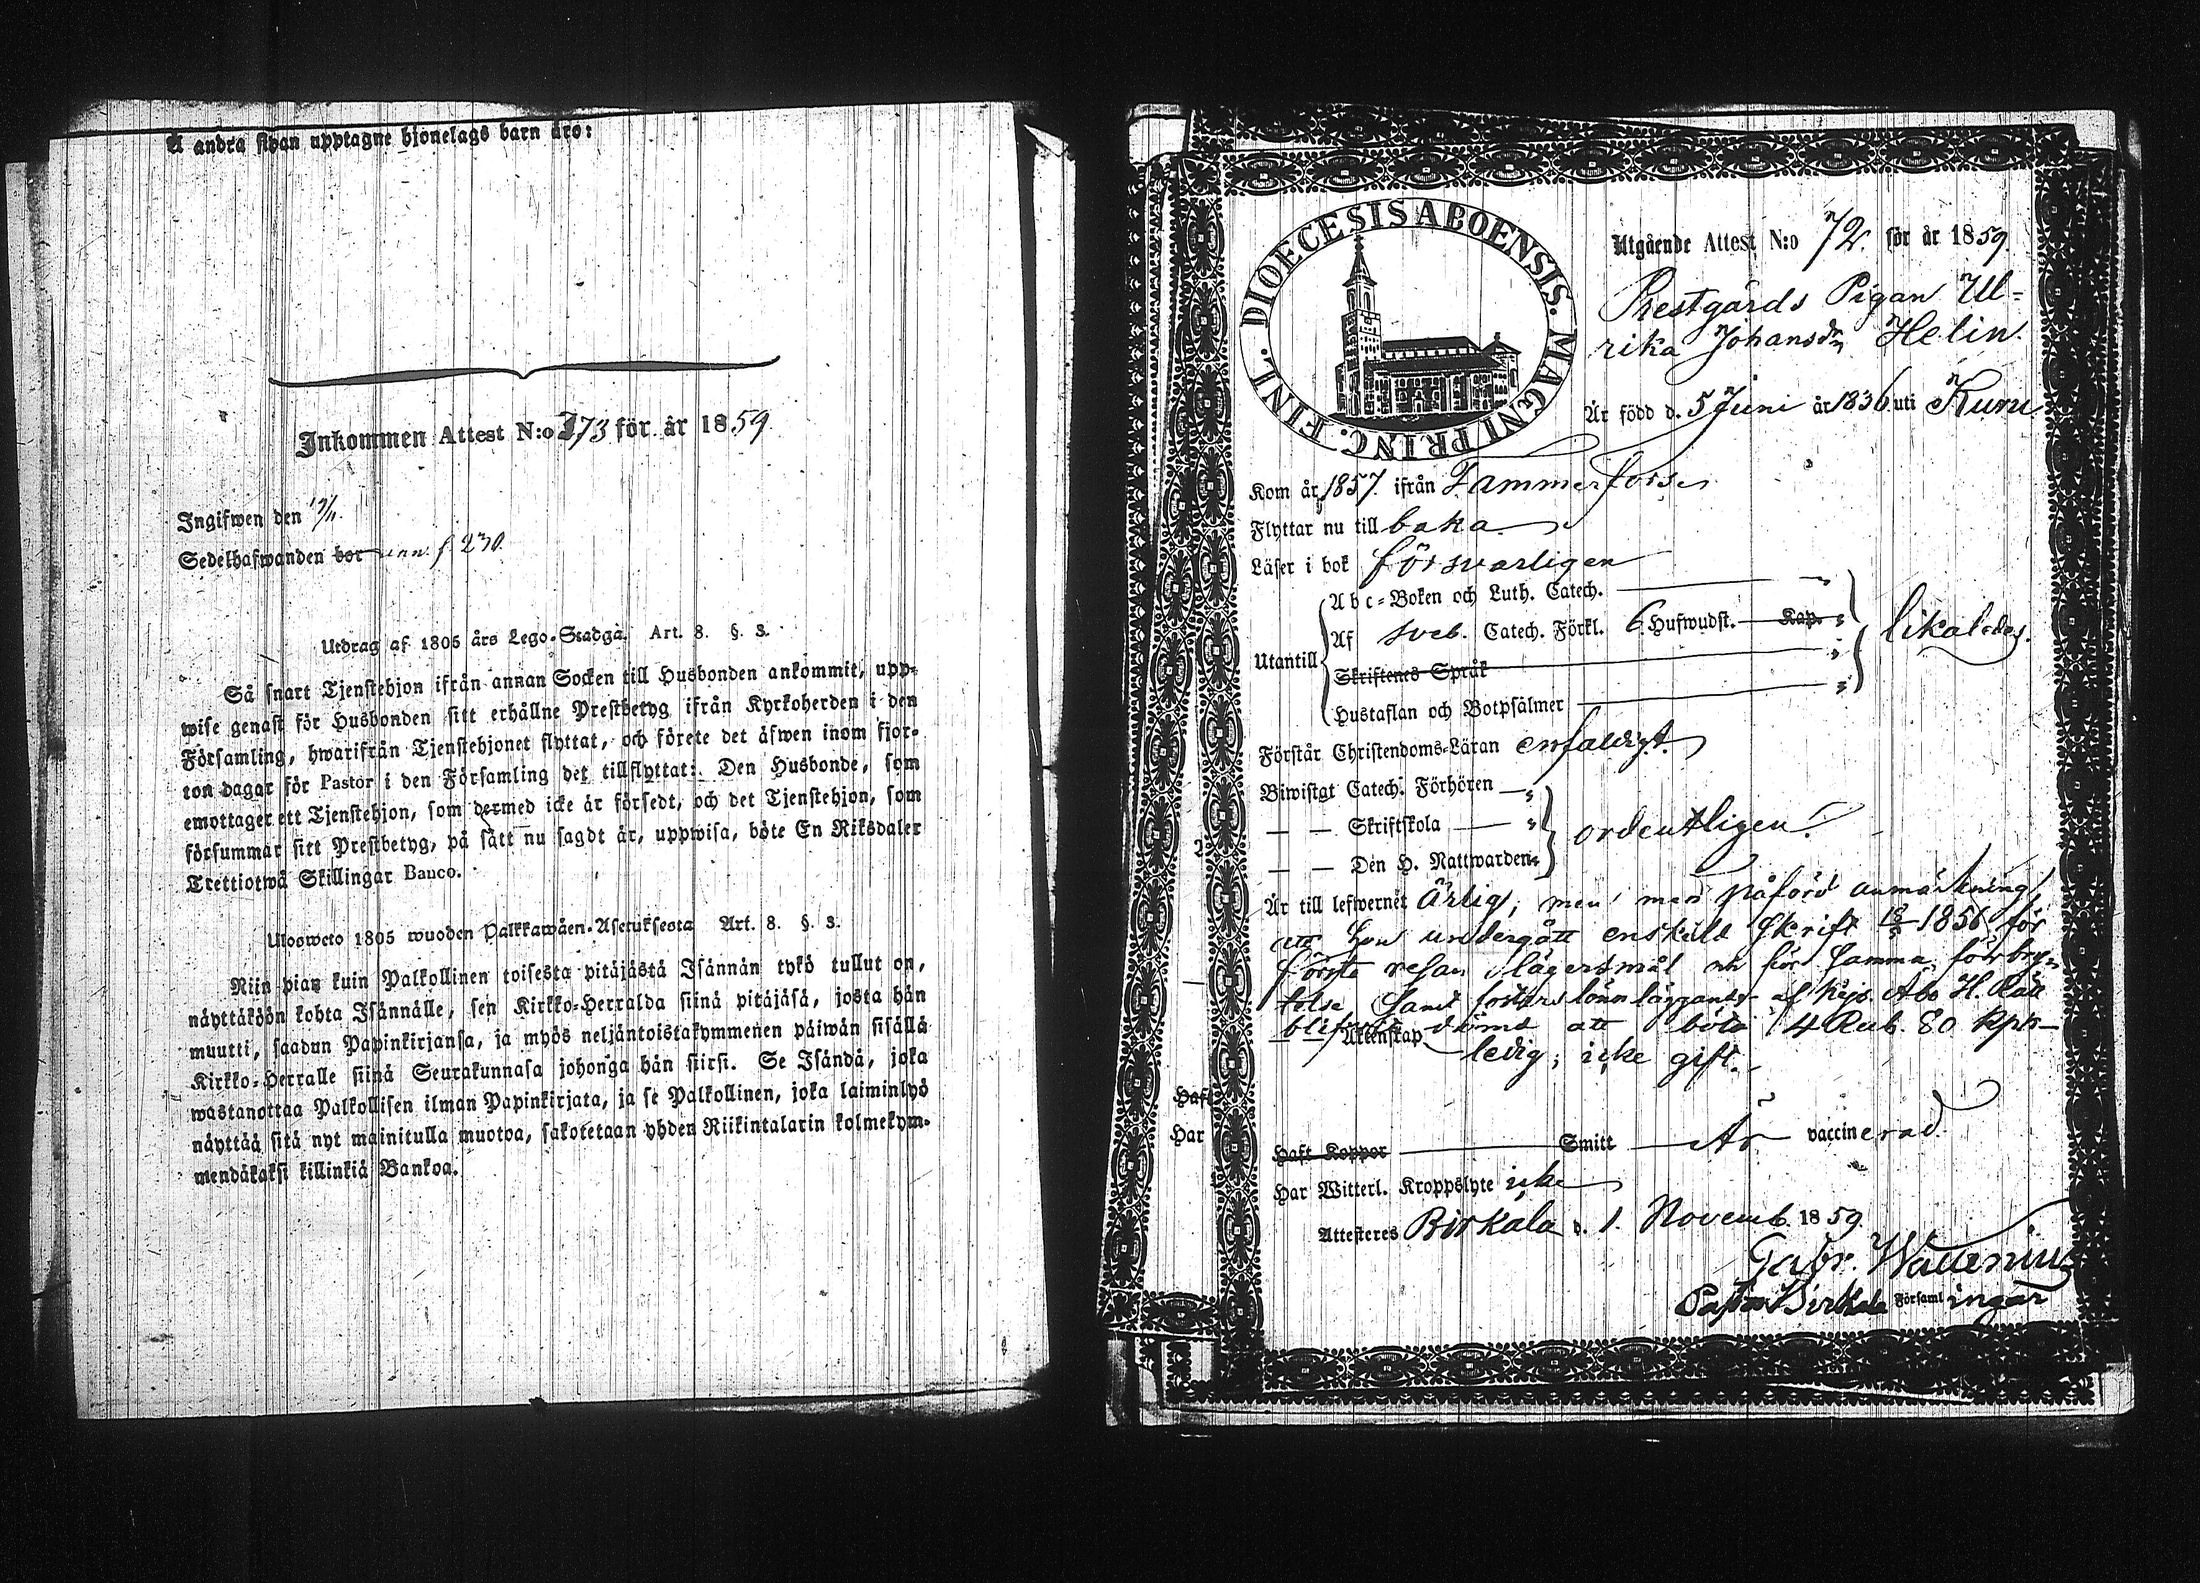 Å andra sidan upptagne hjonelags barn äro:
Inkommen Attest N:o 373 för år 1859
Ingifwen den 19/11.
Sedelhafwanden bor inn. f. 230.
Utdrag af 1805 års Lego-Stadga. Art. 8. §. 3.
Så snart Tjenstehjon ifrån annan Socken till Husbonden ankommit, upp-
wise genast för Husbonden sitt erhållne Prestbetyg ifrån Kyrkoherden i den
Församling, hwarifrån Tjenstehjonet flyttat, och förete det äfwen inom fjor-
ton dagar för Pastor i den Församling det tillflyttat: Den Husbonde, som
emottager ett Tjenstehjon, som dermed icke är försedt, och det Tjenstehjon, som
försummar sitt Prestbetyg, på sätt nu sagdt är, uppwisa, böte En Riksdaler
Trettiotwå Skillingar Banco.
Ulosweto 1805 wuoden Palkkawäen-Asetuksesta Art. 8. §. 3.
Niin pian kuin Palkollinen toisesta pitäjästä Isännän tykö tullut on,
näyttäköön kohta Isännälle, sen Kirkko-Herralda siinä pitäjäsä, josta hän
muutti, saadun Papinkirjansa, ja myös neljäntoistakymmenen päiwän sisällä
Kirkko-Herralle siinä Seurakunnasa johonga hän siirsi. Se Isändä, joka
wastanottaa Palkollisen ilman Papinkirjata, ja se Palkollinen, joka laiminlyö
näyttää sitä nyt mainitulla muotoa, sakotetaan yhden Riikintalarin kolmekym-
mendäkaksi killinkiä Bankoa.
DIOECESIS ABOENSIS. MAGNI PRINC. FINL.
Utgående Attest N:o 72. för år 1859.
Prestgårds Pigan Ul-
rika Johansdr Helin.
Är född d. 5 Juni år 1836 uti Kuru
Kom år 1857. ifrån Tammerfors
Flyttar nu till baka
Läser i bok försvarligen
Abc-Boken och Luth. Catech.
Utantill
Af sveb. Catech. Förkl. 6 Hufwudst. Kap.
likaledes.
Skriftenes Språk
Hustaflan och Botpsalmer
Förstår Christendoms-Läran enfaldigt.
Biwistat Catech. Förhören
— — Skriftskola
ordentligen.
— — Den H. Nattwarden
Är till lefwernet Ärlig, men med påförd anmärkning
att hon undergått enskild skrift 1856 för
första resan lägersmål och för samma förbry-
telse samt fosters lönnläggande af Kejs. Åbo H. Rätt
blifvit dömd att böta 14 Rub. 80 Kpk
Äktenskap
ledig; icke gift.
Haft
Har
Haft Koppor Smitt Är vaccinerad.
Har Witterl. Kroppslyte icke
Attesteres Birkala d. 1. Novemb. 1859
Gabr. Wallenius
Pastor i Birkala Församlingar